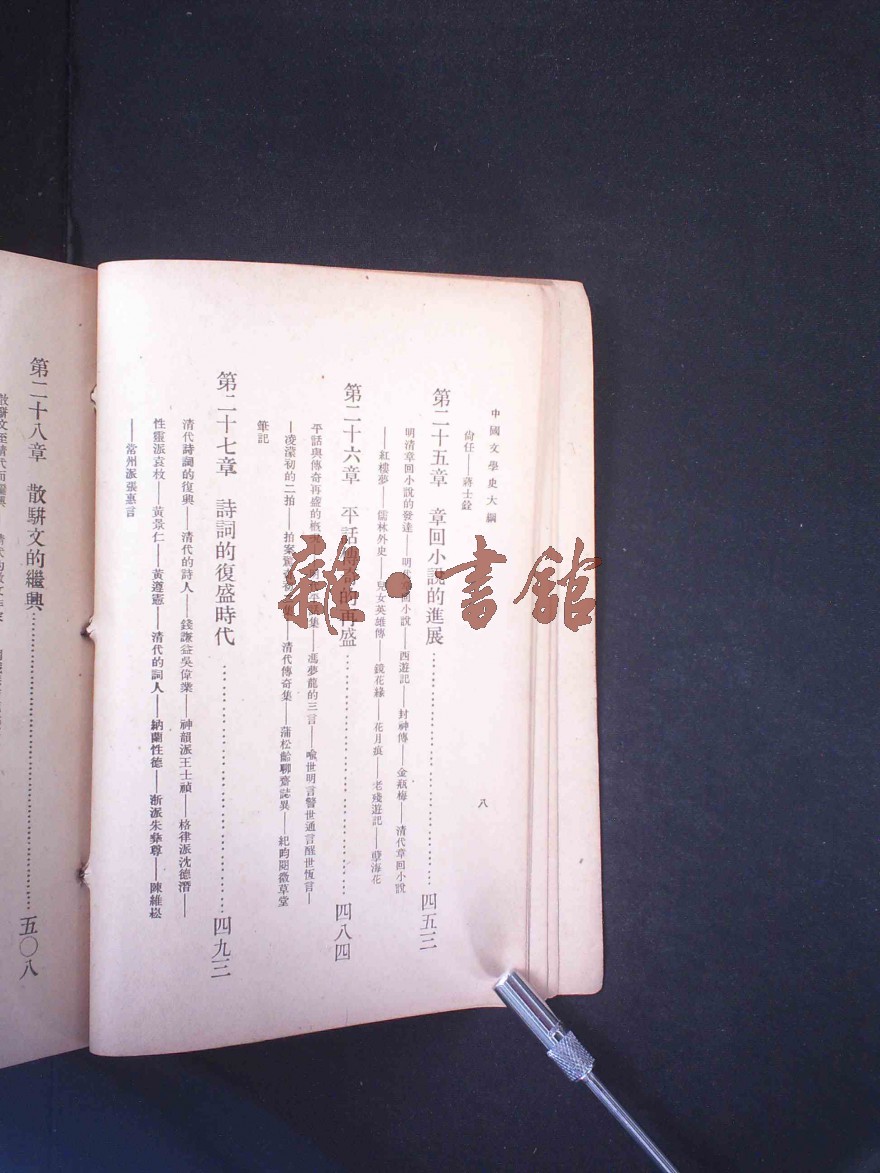 中國文學史大綱
八
尙任——蔣士銓
第二十五章　章回小說的進展……四五三
明清章回小說的發達——明代章回小說——西遊記——封神傳——金瓶梅——清代章回小說
——紅樓夢——儒林外史——兒女英雄傳——鏡花緣——花月痕——老殘遊記——孽海花
第二十六章　平話傳奇的再盛……四八四
平話與傳奇再盛的概況——明代平話集——馮夢龍的三言——喩世明言警世通言醒世恆言—
—凌濛初的二拍——拍案驚奇初二集——清代傳奇集——蒲松齡聊齋誌異——紀昀閱微草堂
筆記
第二十七章　詩詞的復盛時代……四九三
清代詩詞的復興——清代的詩人——錢謙益吳偉業——神韻派王士禎——格律派沈德潛——
性靈派袁枚——黃景仁——黃遵憲——清代的詞人——納蘭性德——浙派朱彝尊——陳維崧
——常州派張惠言
第二十八章　散駢文的繼興……五〇八
散駢文至清代而繼興
雜·書館